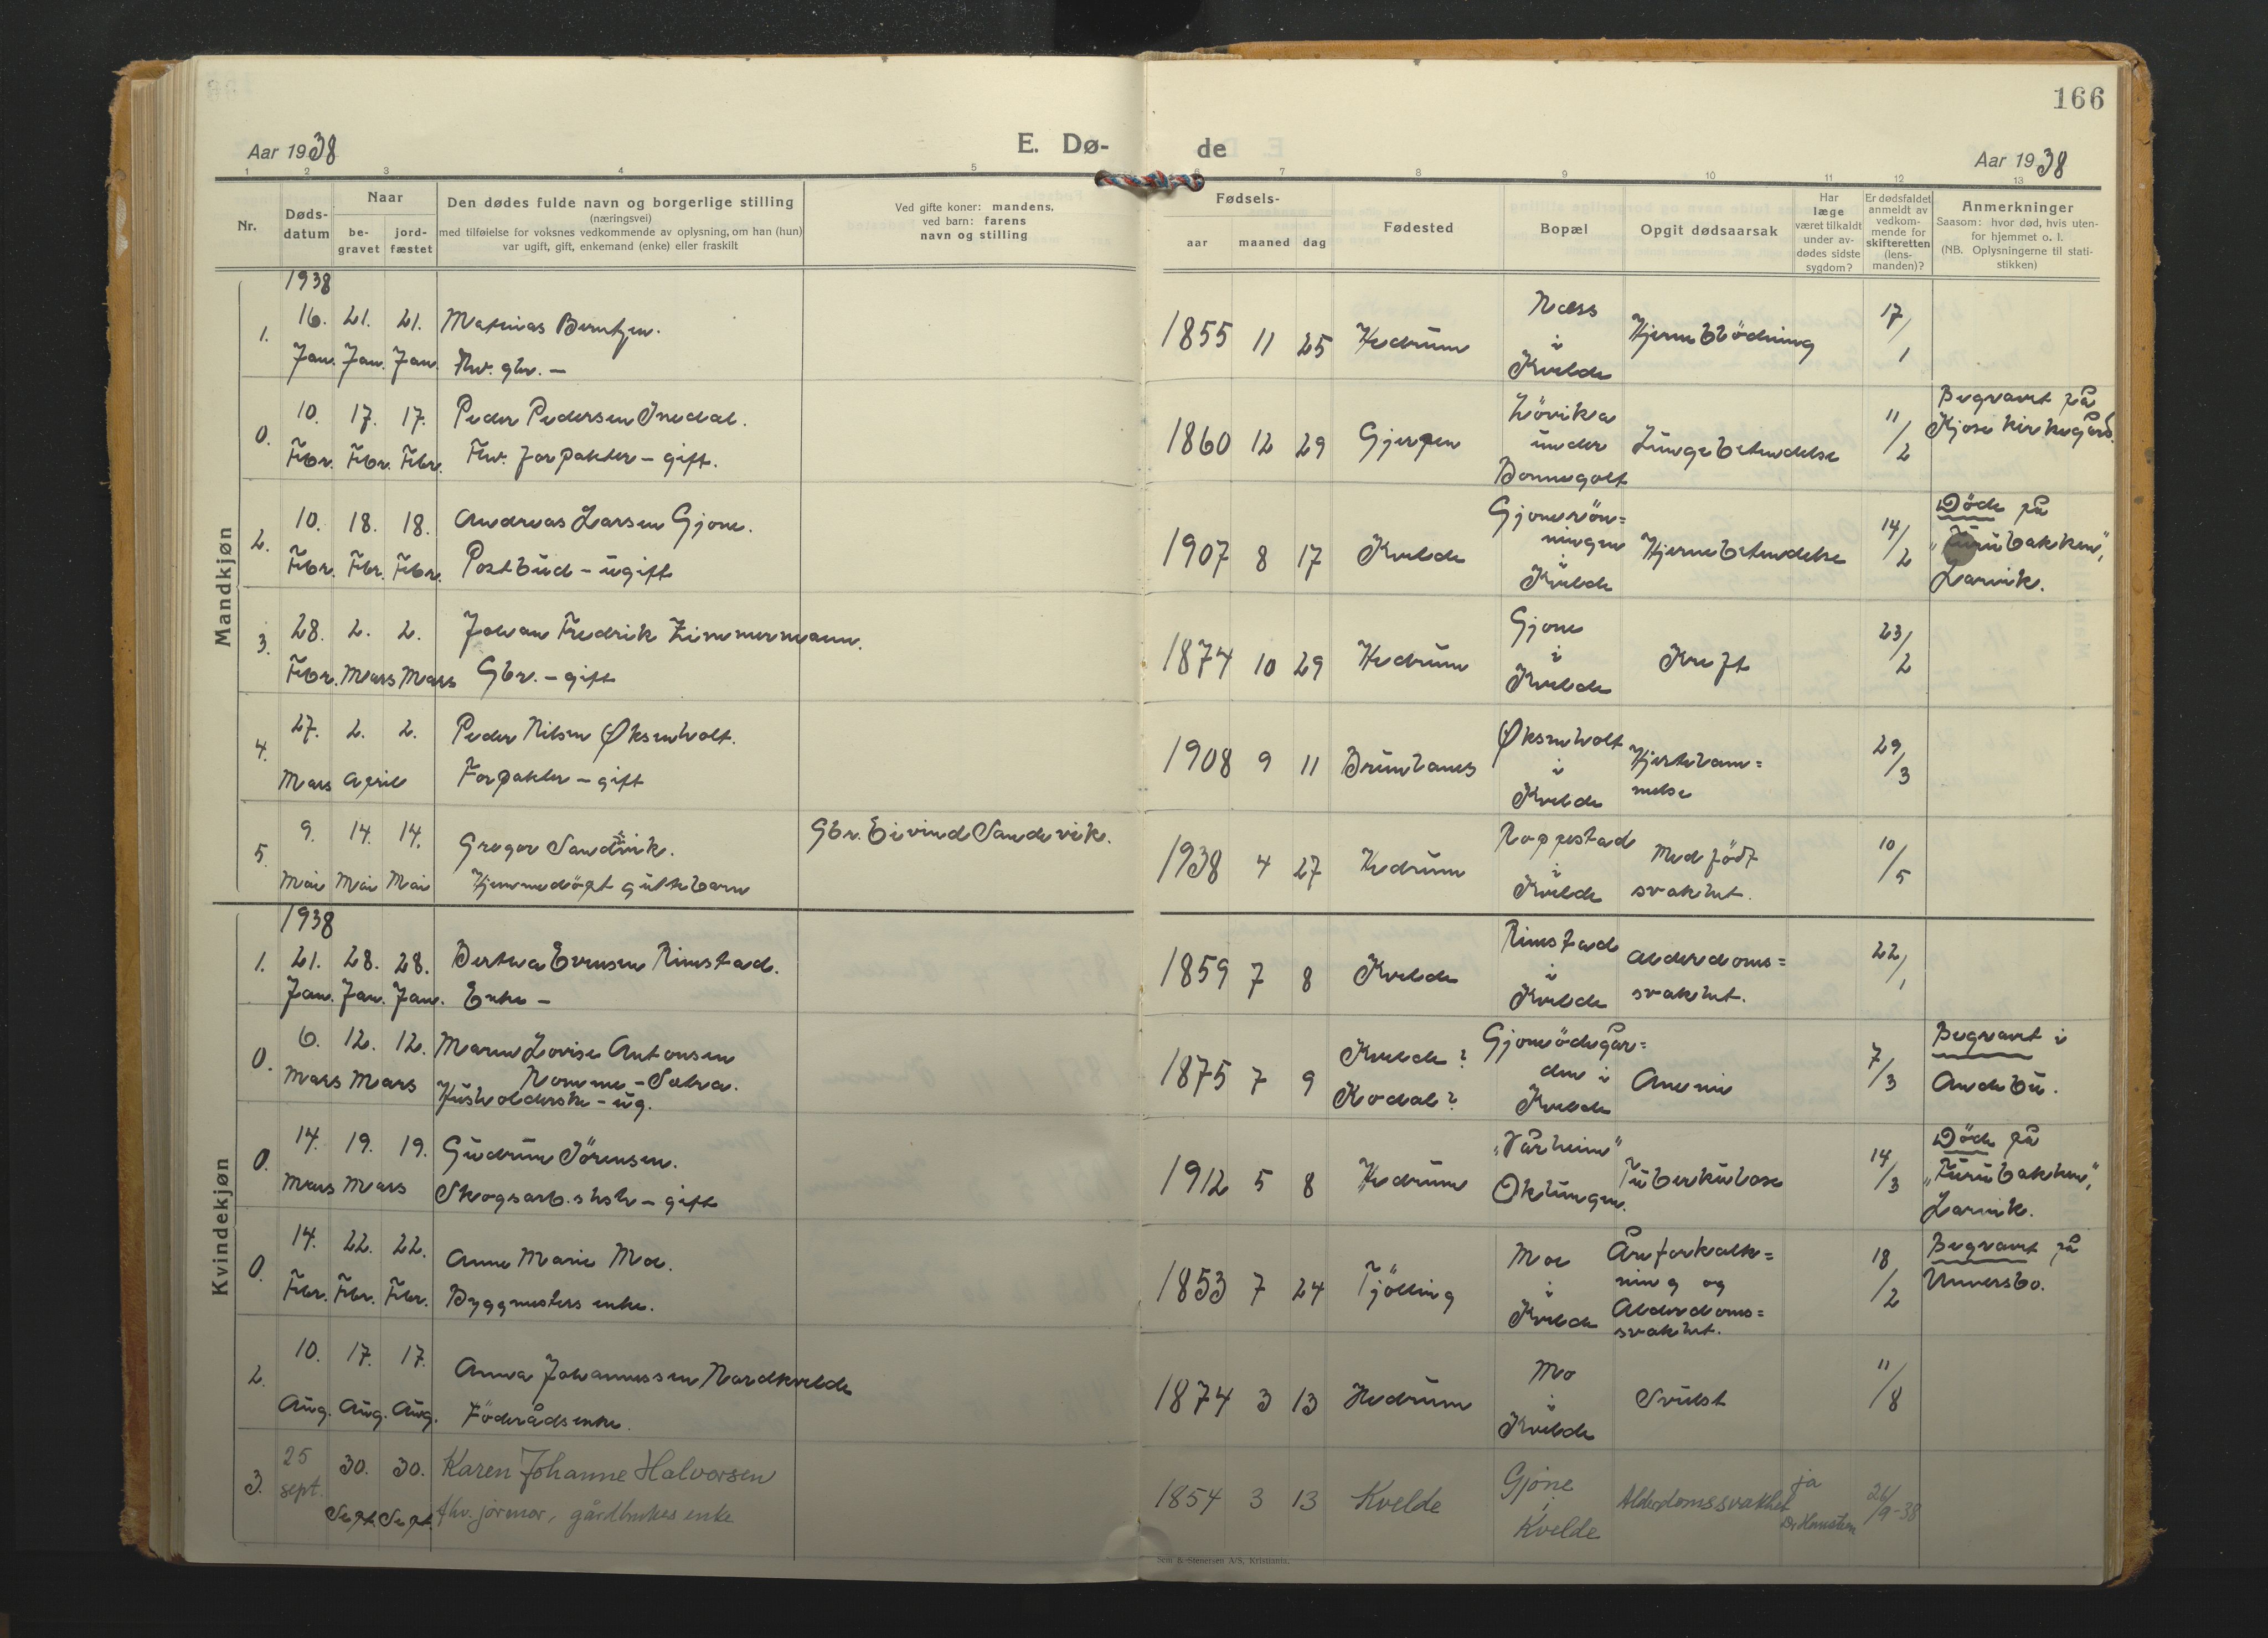 166
Aar 1938
E. Dø-
de
Aar 1938
1 2 3 4 5 7 8 9 10 11 12 13
Nr.
Døds-
datum
Naar
be-
gravet
jord-
fæstet
Den dødes fulde navn og borgerlige stilling
(næringsvei)
med tilføielse for voksnes vedkommende av oplysning, om han (hun)
var ugift, gift, enkemand (enke) eller fraskilt
Ved gifte koner: mandens,
ved barn: farens
navn og stilling
Fødsels-
aar maaned dag
Fødested
Bopæl
Opgit dødsaarsak
Har
læge
været tilkaldt
under av-
dødes sidste
sygdom?
Er dødsfaldet
anmeldt av
vedkom-
mende for
skifteretten
(lens-
manden)?
Anmerkninger
Saasom: hvor død, hvis uten-
for hjemmet o. l.
(NB. Oplysningerne til stati-
stikken)
Mandkjøn
1938
1. 16. 21. 21. Mathias Berntzen.
Jan. Jan. Jan. Fhv. gbr. –
1855 11 25 Hedrum
Næss
i
Kvelde
Hjerneblödning
17/1
0. 10. 17. 17. Peder Pedersen
Febr. Febr. Febr. Fhv. forpakter – gift.
1860 12 29 Gjerpen
Lövika
under
Bonnegolt
Lungebetendelse
11/2
Begravet på
Kjose kirkegård.
2. 10. 18. 18. Andreas Larsen Gjone.
Febr. Febr. Febr. Postbud – ugift
1907 8 17 Kvelde
Gjonerön=
ningen
i
Kvelde
Hjernebetendelse
14/2
Döde på
"Furubakken",
Larvik.
3. 28. 2. 2. Johan Fredrik Zimmermann.
Febr. Mars Mars Gbr. – gift
1874 10 29 Hedrum
Gjone
i
Kvelde
Kreft
23/2
4. 27. 2. 2. Peder Nilsen Øksenholt.
Mars April Forpakter – gift
1908 9 11 Brunlanes
Øksenholt
i
Kvelde
Hjertelam=
melse
29/3
5. 9. 14. 14. Gregor Sandvik.
Mai Mai Mai Hjemmedöpt guttebarn
Gbr. Eivind Sandvik.
1938 4 27 Hedrum
Roppestad
i
Kvelde
Medfödt
svakhet.
10/5
Kvindekjøn
1938
1. 21. 28. 28. Berthea Evensen Rimstad.
Jan. Jan. Jan. Enke –
1859 7 8 Kvelde
Rimstad
i
Kvelde
Alderdoms=
svakhet.
22/1
0. 6. 12. 12. Maren Lovise Antonsen
Mars Mars Nomme – Sætra.
Husholderske – ug.
1875 7 9 Kvelde?
Kodal?
Gjoneödegår=
den i
Kvelde
Anemie
7/3
Begravet i
Andebu.
0. 14. 19. 19. Gudrun Sörensen.
Mars Mars Skogsarb.s hstr – gift
1912 5 8 Hedrum
"Vårheim"
Oklungen.
Tuberkulose
14/3
Döde på
"Furubakken",
Larvik.
0. 14. 22. 22. Anne Marie Moe.
Febr. Febr. Febr. Byggmesters enke.
1853 7 24 Tjölling
Moe
i
Kvelde
Åreforkalk=
ning og
Alderdoms=
svakhet.
18/2
Begravet på
Undersbo.
2. 10. 17. 17. Anna Johannessen Nordkvelde
Aug. Aug. Aug. Föderådsenke.
1874 3 13 Hedrum
Mo
i
Kvelde
Svulst
11/8
3. 25 30. 30. Karen Johanne Halvorsen
sept. Sept. Sept. fhv. jormor, gårdbrukes enke
1854 3 13 Kvelde
Gjone
i
Kvelde
Alderdomssvakhet
ja
Dr
26/9-38
Sem & Stenersen A/S, Kristiania.